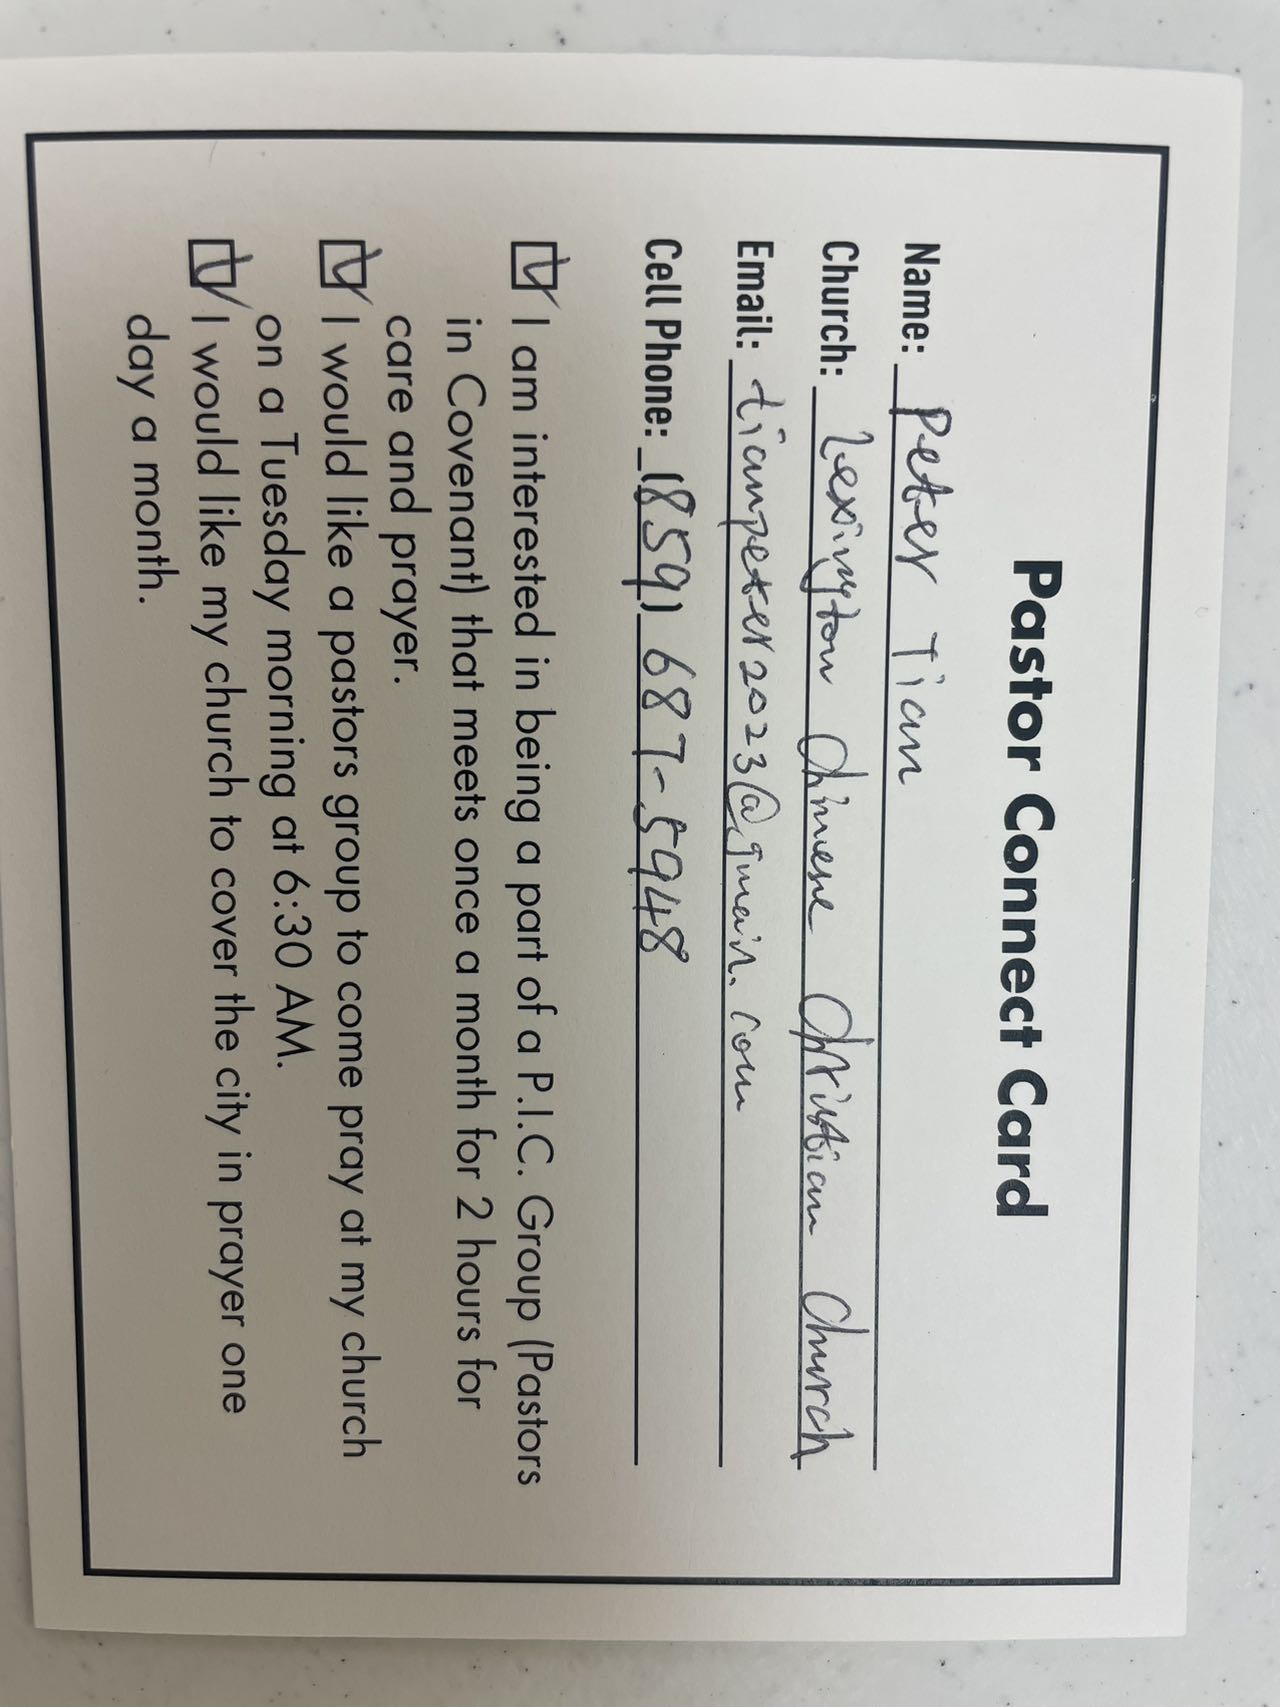 Pastor Connect Card
Name: Peter Tian
Church: Lexington Chinese Christian Church
Email: tianpeter2023@gmail.com
Cell Phone: (859) 687-5948
I am interested in being a part of a P.I.C. Group (Pastors
in Covenant) that meets once a month for 2 hours for
care and prayer.
I would like a pastors group to come pray at my church
on a Tuesday morning at 6:30 AM.
I would like my church to cover the city in prayer one
day a month.